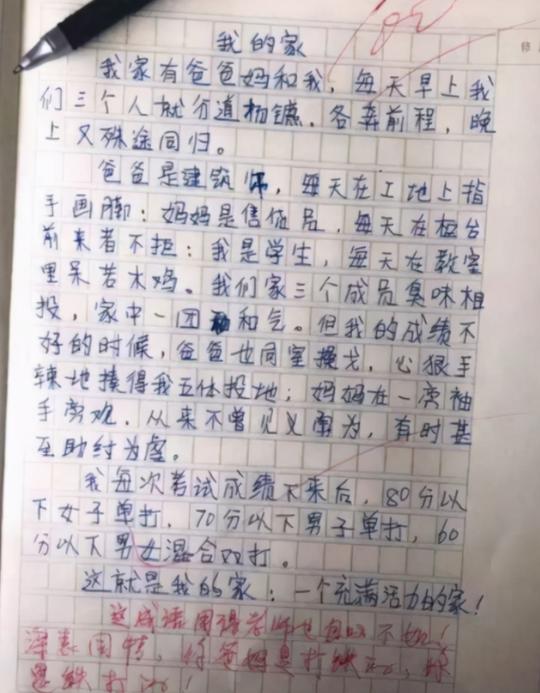 我的家
我家有爸爸妈和我，每天早上我
们三个人就分道扬镳，各奔前程，晚
上又殊途同归。
爸爸是建筑师，每天在工地上指
手画脚；妈妈是售货员，每天在柜台
前来者不拒；我是学生，每天在教室
里呆若木鸡。我们家三个成员臭味相
投，家中一团和气。但我的成绩不
好的时候，爸爸也同室操戈，心狠手
辣地揍得我五体投地；妈妈在一旁袖
手旁观，从来不曾见义勇为，有时甚
至助纣为虐。
我每次考试成绩下来后，80分以
下女子单打，70分以下男子单打，60
分以下男女混合双打。
这就是我的家：一个充满活力的家！
这成语用得老师也自叹不如！
深表同情，你爸妈是打铁的，你
是铁打的！